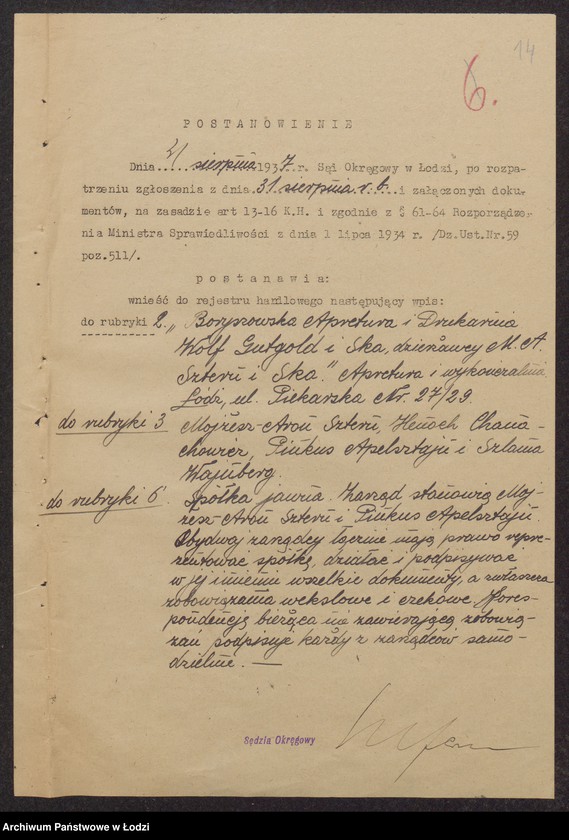 14
6.
POSTANOWIENIE
Dnia 21 sierpnia 1937 r. Sąd Okręgowy w Łodzi, po rozpa-
trzeniu zgłoszenia z dnia 31 sierpnia r.b. i załączonych doku-
mentów, na zasadzie art 13-16 K.H. i zgodnie z § 61-64 Rozporządze-
nia Ministra Sprawiedliwości z dnia 1 lipca 1934 r. /Dz.Ust.Nr.59
poz.511/.
postanawia:
wnieść do rejestru handlowego następujący wpis:
do rubryki 2. „Boryszowska Apretura i Drukarnia
Wolf Gutgold i Ska, dzierżawcy M. A.
Sztern i Ska." Apretura i wykończalnia
Łódź, ul. Piekarska Nr. 27/29.
do rubryki 3 Mojżesz-Aron Sztern, Henoch Chana-
chowicz, Pinkus Apelsztajn i Szlama
Wajnberg.
do rubryki 6 Spółka jawna. Zarząd stanowią Moj-
żesz-Aron Sztern i Pinkus Apelsztajn.
Obydwaj zarządcy łącznie mają prawo repre-
zentować spółkę, działać i podpisywać
w jej imieniu wszelkie dokumenty, a zwłaszcza
zobowiązania wekslowe i czekowe. Kores-
pondencję bieżącą nie zawierającą zobowią-
zań podpisuje każdy z zarządców samo-
dzielnie. —
Sędzia Okręgowy
Archiwum Państwowe w Łodzi